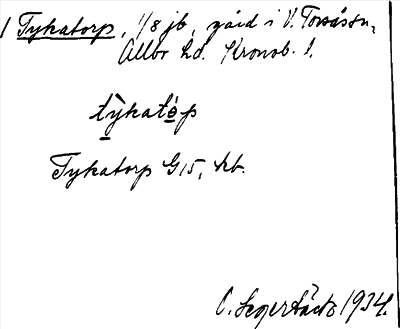 1 Tykatorp, 1/8 jb, gård i V. Torsåssn,
Allbo hd. Kronob. l.
tỳkatɷ́p
Tykatorp G15, kb.
O. Segerbäck 1934.